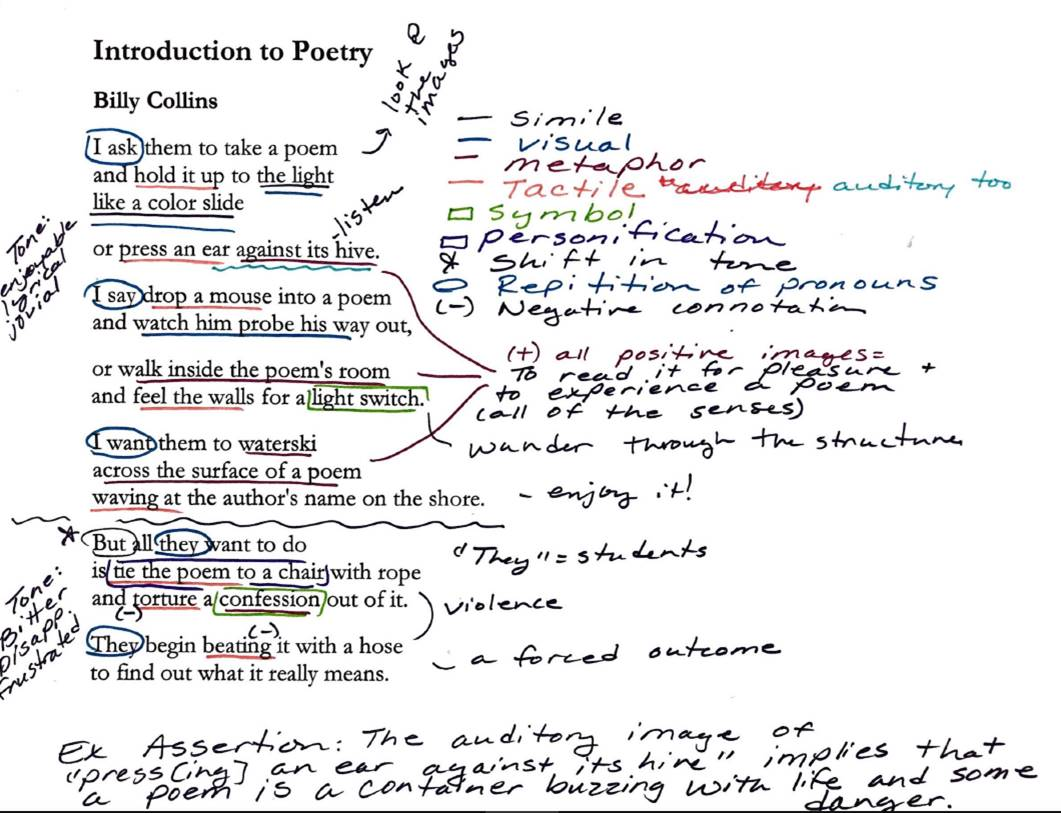 Introduction to Poetry
look @
the
images
Billy Collins
I ask them to take a poem
and hold it up to the light
like a color slide
- listen
or press an ear against its hive.
I say drop a mouse into a poem
and watch him probe his way out,
or walk inside the poem's room
and feel the walls for a light switch.
I want them to waterski
across the surface of a poem
waving at the author's name on the shore.
But all they want to do
is tie the poem to a chair with rope
and torture a confession out of it.
(-)
(-)
They begin beating it with a hose
to find out what it really means.
Tone:
enjoyable
lyrical
jovial
Tone:
Bitter
Disapp.
frustrated
— Simile
— visual
— metaphor
— Tactile auditory auditory too
▭ Symbol
▭ personification
* Shift in tone
○ Repitition of pronouns
(-) Negative connotation
(+) all positive images=
To read it for pleasure +
to experience a poem
(all of the senses)
wander through the structure
- enjoy it!
"They" = students
violence
a forced outcome
Ex Assertion: The auditory image of
"press[ing] an ear against its hive" implies that
a poem is a container buzzing with life and some
danger.